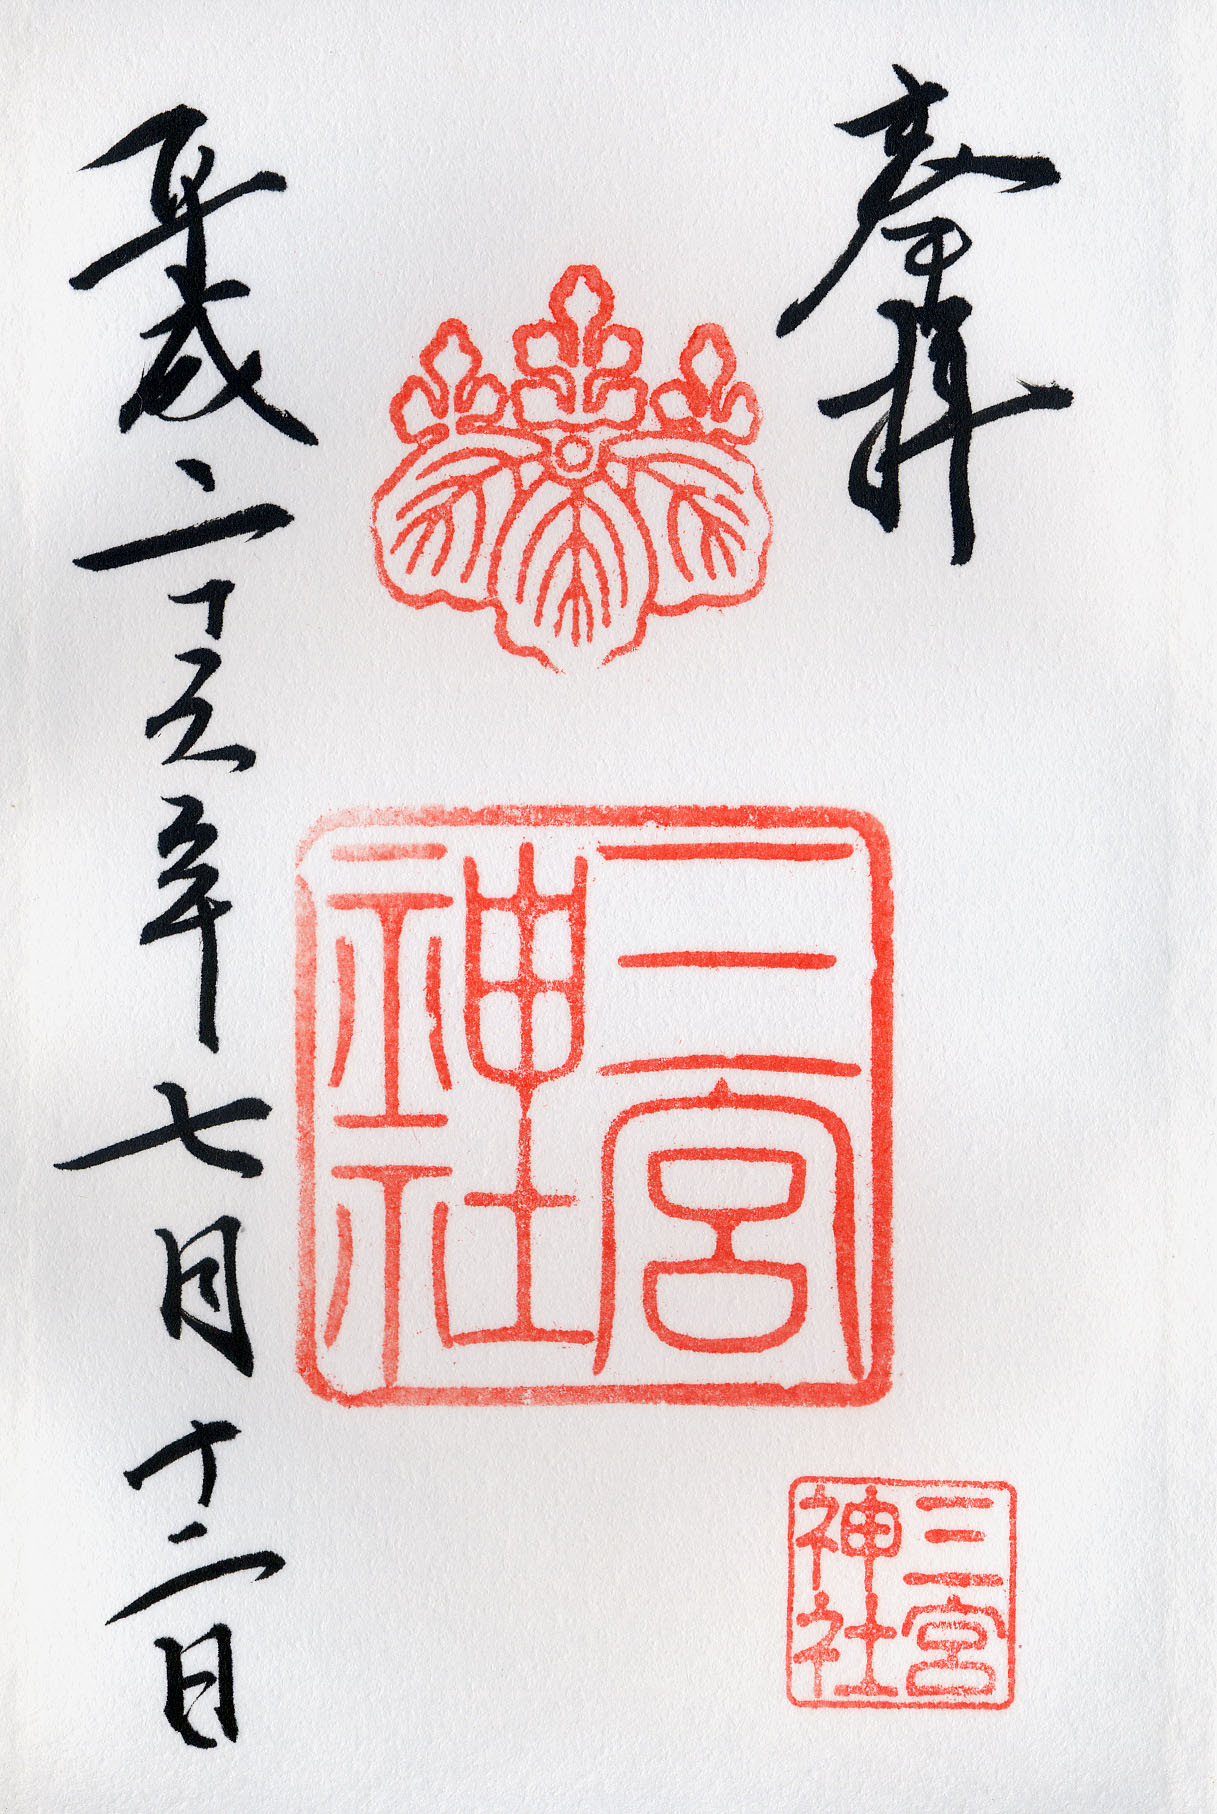 奉拝
三宮
神社
三宮
神社
平成二十五年七月十二日